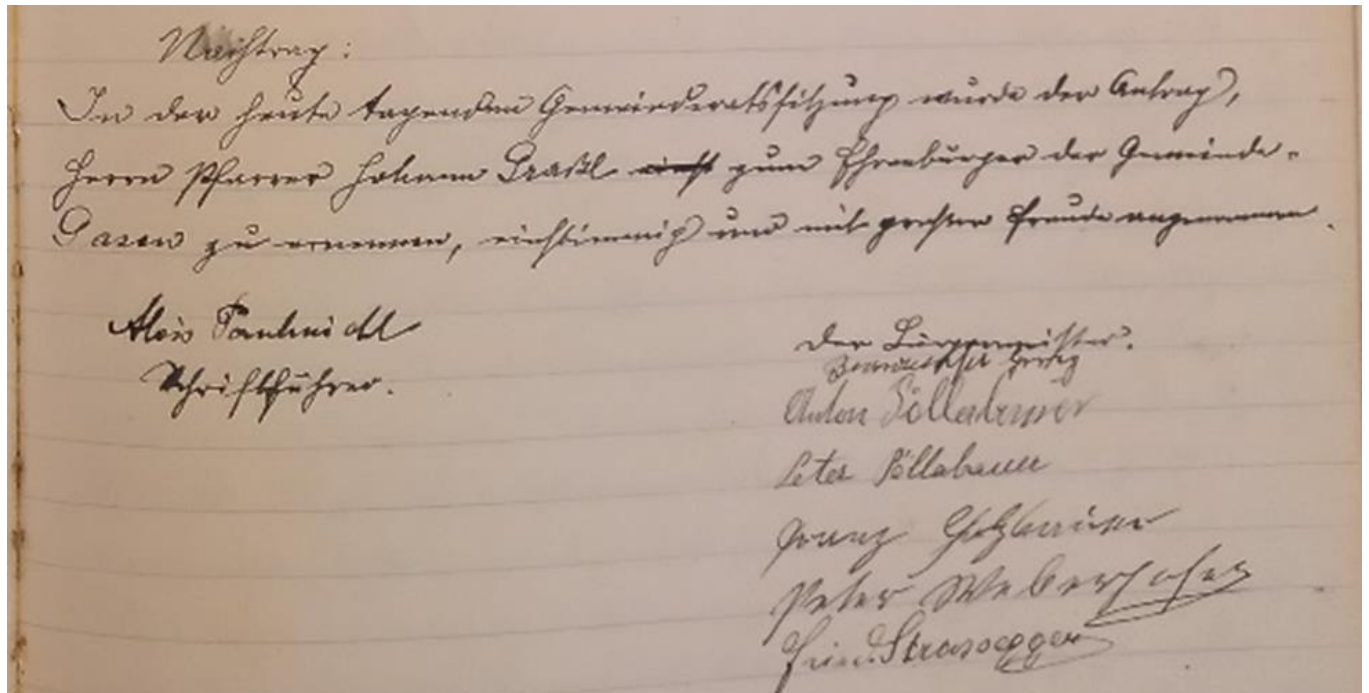 Nachtrag:
In der heute tagenden Gemeinderatssitzung wurde der Antrag,
Herrn Pfarrer Johann Graßl zum Ehrenbürger der Gemeinde
Gasen zu ernennen, einstimmig und mit großer Freude angenommen.
Alois
Schriftführer.
Der Bürgermeister.
Anton Pöllabauer
Peter Pöllabauer
Franz
Peter Weberhofer
Strassegger